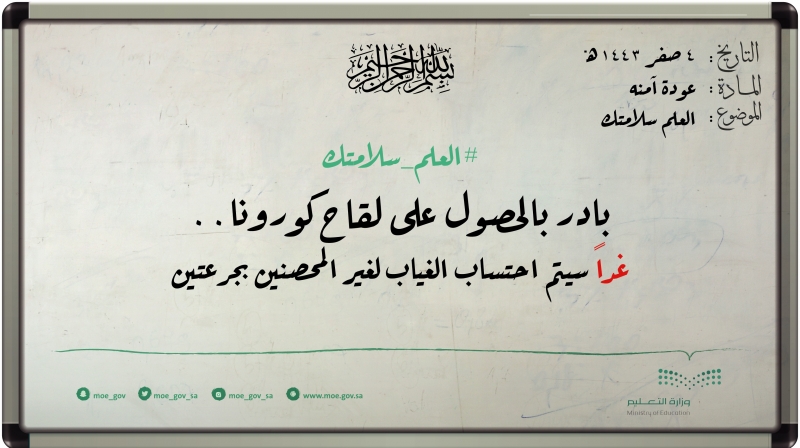 بسم الله الرحمن الرحيم
التاريخ : ٤ صفر ١٤٤٣هـ
المادة : عودة آمنه
الموضوع : العلم سلامتك
#العلم_سلامتك
بادر بالحصول على لقاح كورونا . .
غداً سيتم احتساب الغياب لغير المحصنين بجرعتين
moe_gov moe_gov_sa moe_gov_sa www.moe.gov.sa
وزارة التعليم
Ministry of Education